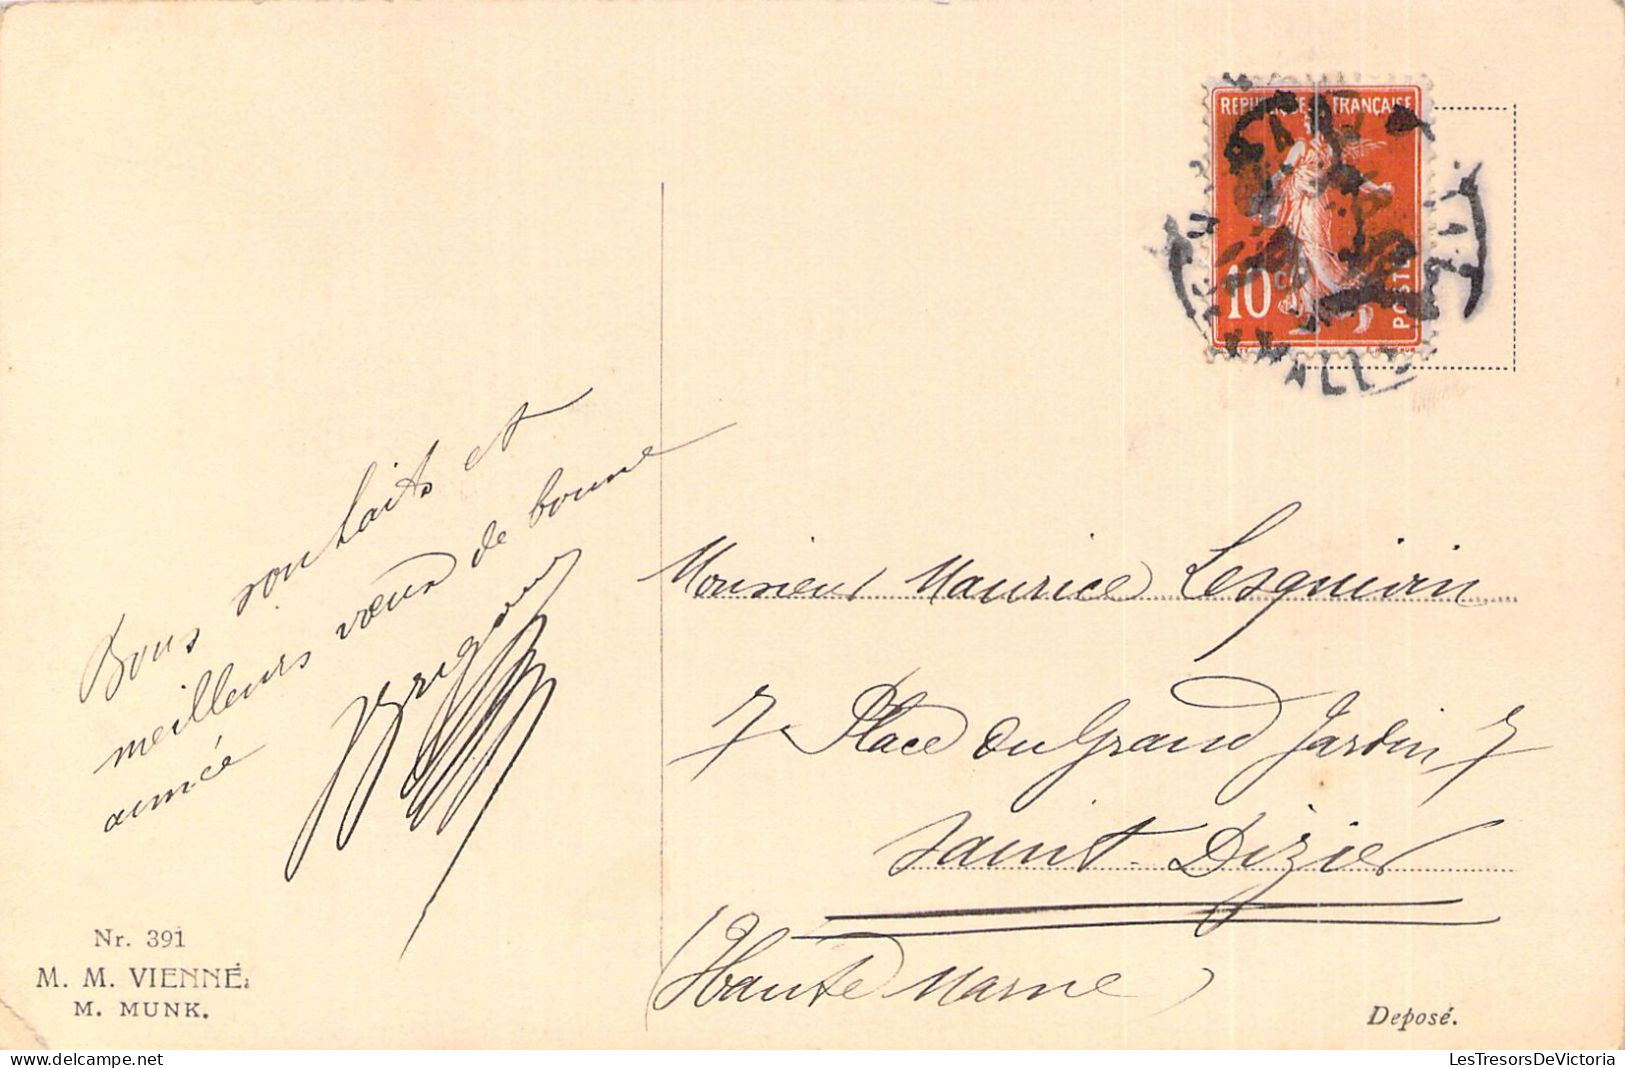 RÉPUBLIQUE FRANÇAISE
10 c
POSTES
Bons souhaits et
meilleurs vœux de bonne
année
Monsieur Maurice Lesquivin
7 Place du Grand Jardin 7
Saint-Dizier
(Haute Marne)
Nr. 391
M. M. VIENNE.
M. MUNK.
Deposé.
LesTresorsDeVictoria